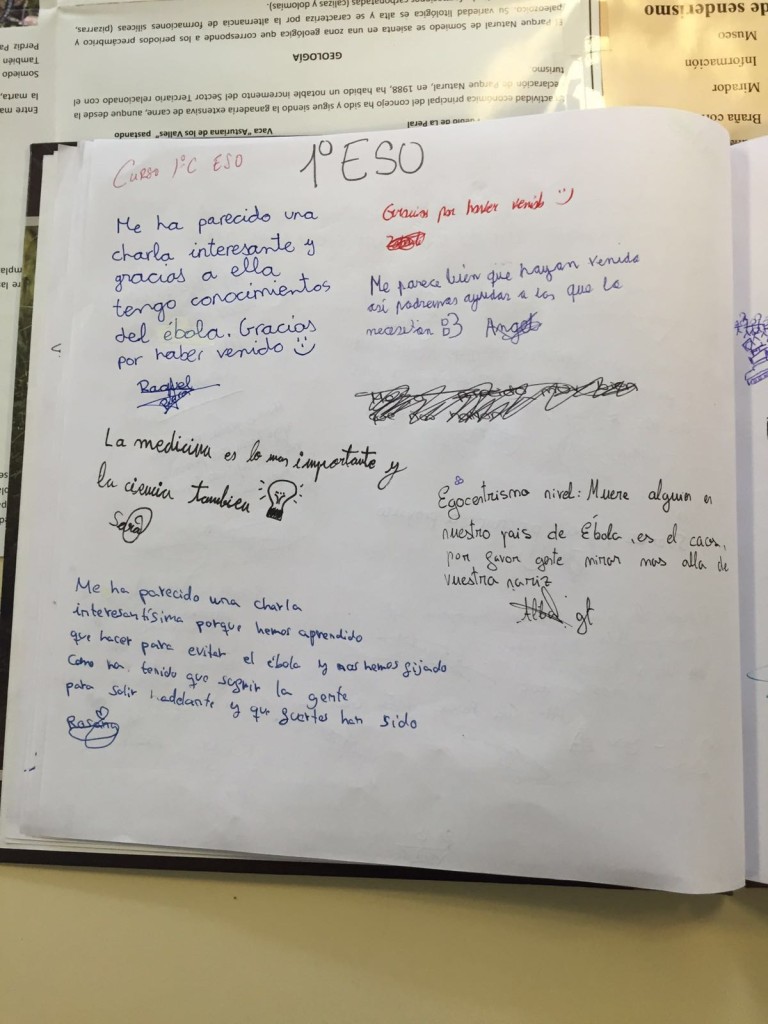 de senderismo
Musco
Información
Mirador
Braña con
Perdir Pa
También
Somiedo
la marta,
Entre ma
paleozoico. Su variedad litológica es alta y se caracteriza por la alternancia de formaciones silíceas (pizarras,
carbonatadas (calizas y dolomías).
El Parque Natural de Somiedo se asienta en una zona geológica que corresponde a los periodos precámbrico y
GEOLOGÍA
turismo
declaración de Parque Natural, en 1988, ha habido un notable incremento del Sector Terciario relacionado con el
actividad económica principal del concejo ha sido y sigue siendo la ganadería extensiva de carne, aunque desde la
Vaca "Asturiana de los Valles" pastando
Pueblo de La Peral
Curso 1ºC ESO
1º ESO
Me ha parecido una
charla interesante y
gracias a ella
tengo conocimientos
del ébola. Gracias
por haber venido :)
Raquel
Gracias por haver venido :)
Me parece bien que hayan venido
así podremos ayudar a los que lo
necesitan :3 Angel
La medicina es lo mas importante y
la ciencia tambien
Sara
Egocentrismo nivel: Muere alguien en
nuestro pais de Ébola, es el caos,
por favor gente mirar mas alla de
vuestra nariz
Alba gt
Me ha parecido una charla
interesantísima porque hemos aprendido
que hacer para evitar el ébola y nos hemos fijado
como ha tenido que sufrir la gente
para salir hadelante y que fuertes han sido
Rosana